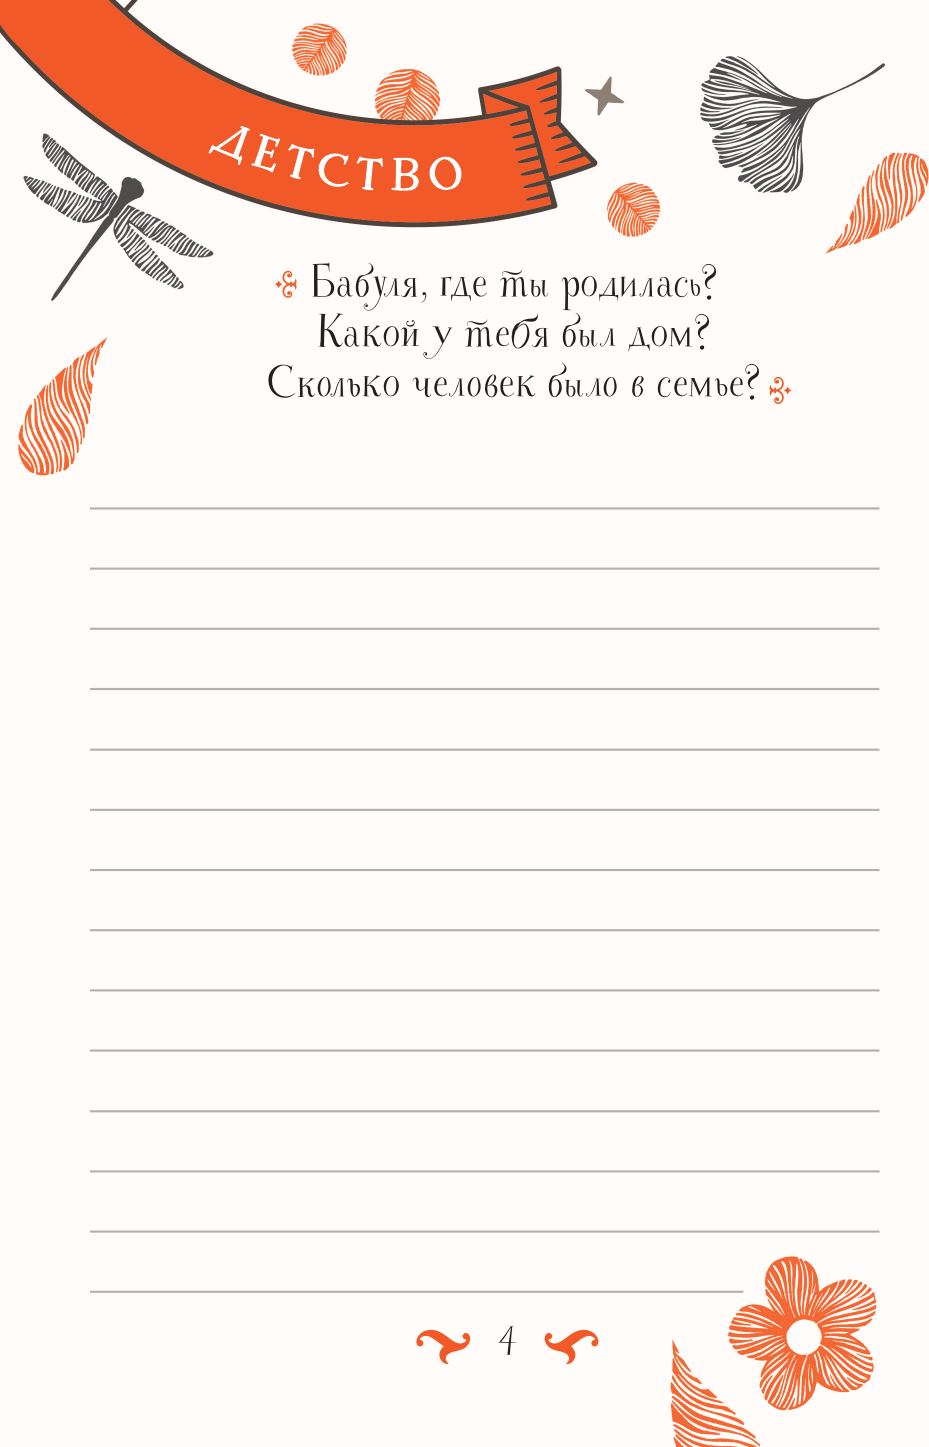 ДЕТСТВО
Бабуля, где ты родилась?
Какой у тебя был дом?
Сколько человек было в семье?
4